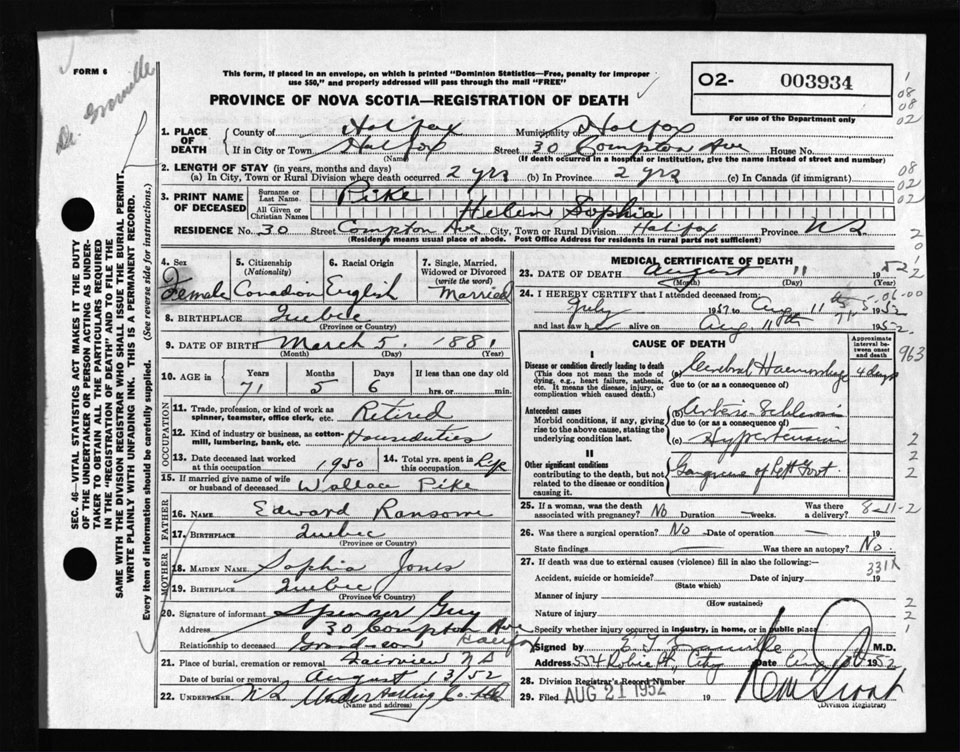 FORM 6
This form, if placed in an envelope, on which is printed "Dominion Statistics—Free, penalty for improper
use $50," and properly addressed will pass through the mail "FREE"
PROVINCE OF NOVA SCOTIA—REGISTRATION OF DEATH
02- 003934
For use of the Department only
1. PLACE OF DEATH
County of Halifax Municipality of Halifax
If in City or Town Halifax Street 30 Compton Ave House No.
(Name) (If death occurred in a hospital or institution, give the name instead of street and number)
2. LENGTH OF STAY (in years, months and days)
(a) In City, Town or Rural Division where death occurred 2 yrs (b) In Province 2 yrs (c) In Canada (if immigrant)
3. PRINT NAME OF DECEASED
Surname or Last Name Pike
All Given or Christian Names Helen Sophia
RESIDENCE No. 30 Street Compton Ave City, Town or Rural Division Halifax Province N.S.
(Residence means usual place of abode. Post Office Address for residents in rural parts not sufficient)
4. Sex Female
5. Citizenship (Nationality) Canadian
6. Racial Origin English
7. Single, Married, Widowed or Divorced (write the word) Married
8. BIRTHPLACE Quebec
(Province or Country)
9. DATE OF BIRTH March 5. 1881
(Month) (Day) (Year)
10. AGE in Years 71 Months 5 Days 6 If less than one day
hrs. or min.
OCCUPATION
11. Trade, profession, or kind of work as spinner, teamster, office clerk, etc. Retired
12. Kind of industry or business, as cotton-mill, lumbering, bank, etc. Houseduties
13. Date deceased last worked at this occupation 1950
14. Total yrs. spent in this occupation Life
15. If married give name of wife or husband of deceased Wallace Pike
FATHER
16. Name Edward Ransome
17. Birthplace Quebec
(Province or Country)
MOTHER
18. Maiden Name Sophia Jones
19. Birthplace Quebec
(Province or Country)
20. Signature of informant Spenser Guy
Address 30 Compton Ave Halifax
Relationship to deceased Grandson
21. Place of burial, cremation or removal Fairview N S
Date of burial or removal August 13/52
22. Undertaker. N S Undertaking Co. Ltd
(Name and address)
MEDICAL CERTIFICATE OF DEATH
23. DATE OF DEATH August 11 1952
(Month) (Day)
24. I HEREBY CERTIFY that I attended deceased from:
July 195 to Aug 11th 1952
and last saw her alive on Aug 11th 1952.
CAUSE OF DEATH
Approximate interval between onset and death
I
Disease or condition directly leading to death
(This does not mean the mode of dying, e.g., heart failure, asthenia, etc. It means the disease, injury, or complication which caused death.)
(a) Cerebral Haemorrhage 4 days
due to (or as a consequence of)
Antecedent causes
Morbid conditions, if any, giving rise to the above cause, stating the underlying condition last.
(b) Arterio-Schlerosis
due to (or as a consequence of)
(c) Hypertension
II
Other significant conditions
contributing to the death, but not related to the disease or condition causing it.
Gangrene of Left Foot.
25. If a woman, was the death associated with pregnancy? No Duration weeks. Was there a delivery?
8-11-2
26. Was there a surgical operation? No Date of operation 19
State findings Was there an autopsy? No
27. If death was due to external causes (violence) fill in also the following:
Accident, suicide or homicide? Date of injury 19
(State which)
Manner of injury
(How sustained)
Nature of injury
Specify whether injury occurred in industry, in home, or in public place
Signed by E. T. Granville M.D.
Address 554 Robie St, City Date Aug 1952
28. Division Registrar's Record Number
29. Filed AUG 21 1952 19
(Division Registrar)
SEC. 46—VITAL STATISTICS ACT MAKES IT THE DUTY
OF THE UNDERTAKER OR PERSON ACTING AS UNDER-
TAKER TO OBTAIN ALL THE PARTICULARS REQUIRED
IN THE "REGISTRATION OF DEATH" AND TO FILE THE
SAME WITH THE DIVISION REGISTRAR WHO SHALL ISSUE THE BURIAL PERMIT.
WRITE PLAINLY WITH UNFADING INK. THIS IS A PERMANENT RECORD.
Every item of information should be carefully supplied. (See reverse side for instructions.)
Dr. Granville
963